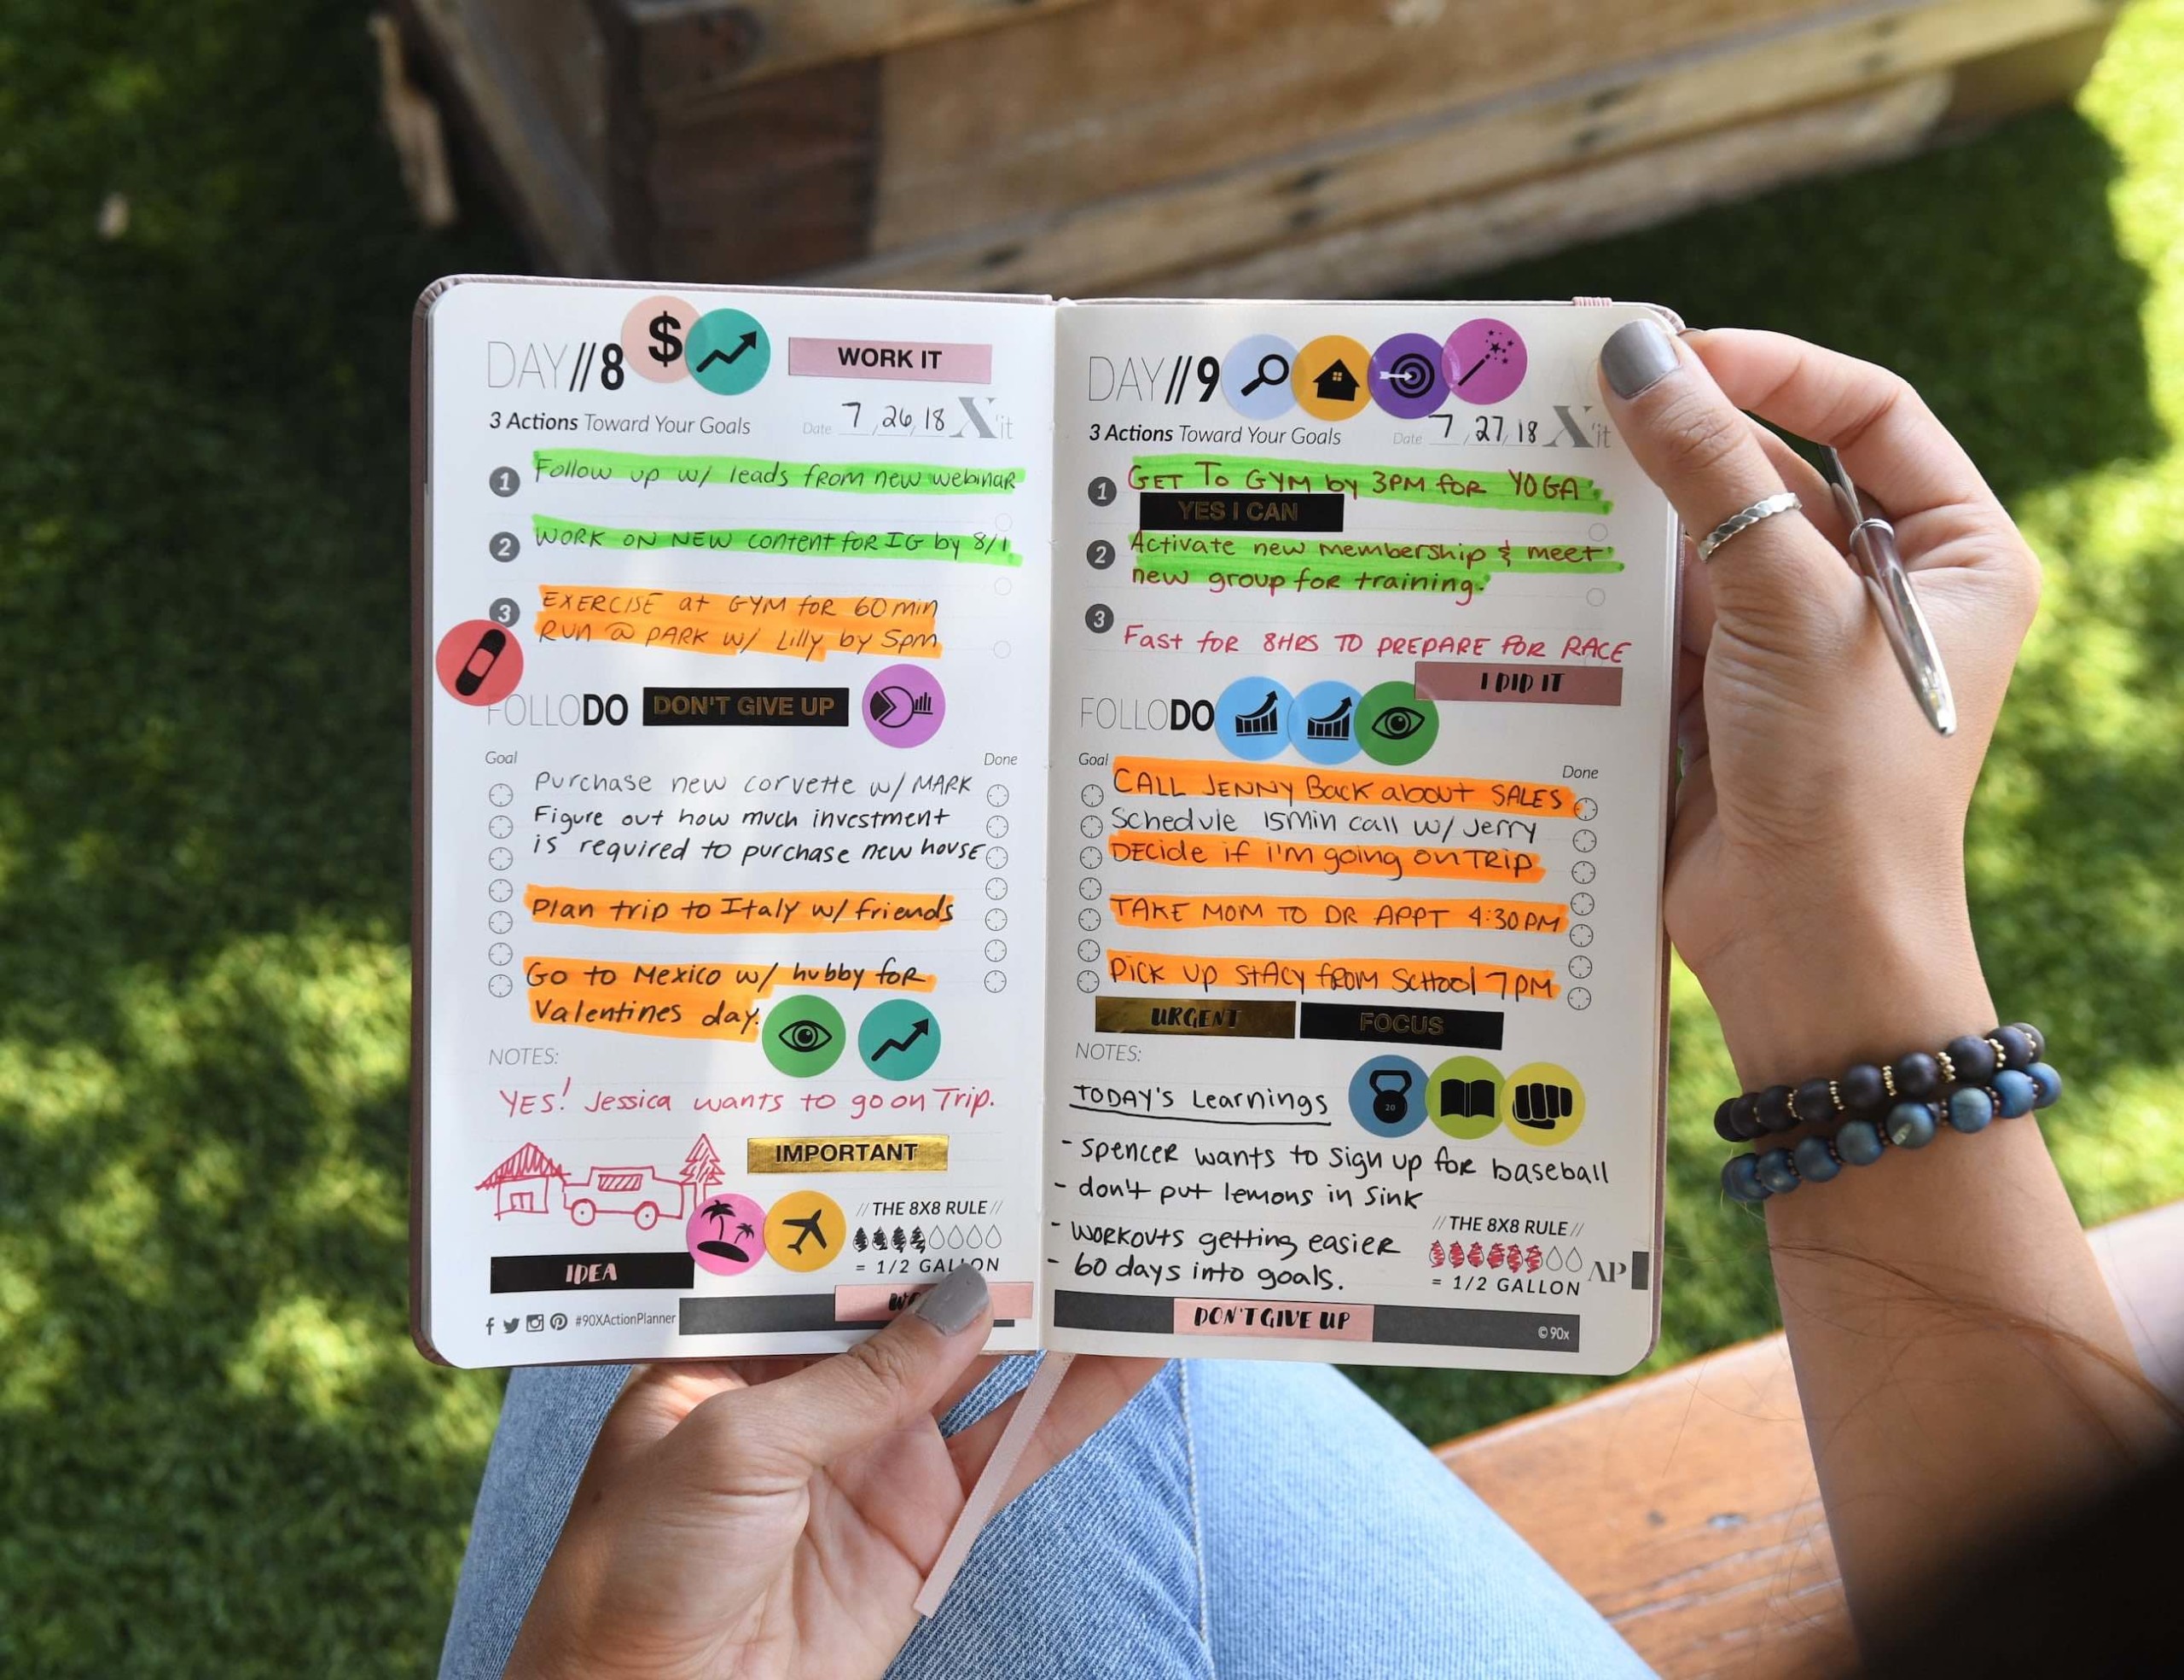 DAY//8
$
WORK IT
3 Actions Toward Your Goals
Date 7, 26, 18 X'it
1 Follow up w/ leads from new webinar
2 WORK ON NEW content for IG by 8/1
3 EXERCISE at GYM for 60 min
Run @ PARK w/ Lilly by 5pm
FOLLODO
DON'T GIVE UP
Goal Done
Purchase new corvette w/ MARK
Figure out how much investment
is required to purchase new house
Plan trip to Italy w/ friends
Go to Mexico w/ hubby for
Valentines day.
NOTES:
YES! Jessica wants to go on Trip.
IMPORTANT
// THE 8X8 RULE //
= 1/2 GALLON
IDEA
#90XActionPlanner
DAY//9
3 Actions Toward Your Goals
Date 7, 27, 18 X'it
1 GET TO GYM by 3PM for YOGA
YES I CAN
2 Activate new membership & meet
new group for training.
3 Fast for 8HRS TO PREPARE FOR RACE
I DID IT
FOLLODO
Goal Done
CALL JENNY Back about SALES
Schedule 15Min call w/ Jerry
DEcide if i'm going on TRIP
TAKE MOM TO DR APPT 4:30PM
Pick up StAcy from School 7PM
URGENT
FOCUS
NOTES:
TODAY'S Learnings
20
- Spencer wants to sign up for baseball
- don't put lemons in sink
- Workouts getting easier
- 60 days into goals.
// THE 8X8 RULE //
= 1/2 GALLON
AP
DON'T GIVE UP
© 90x